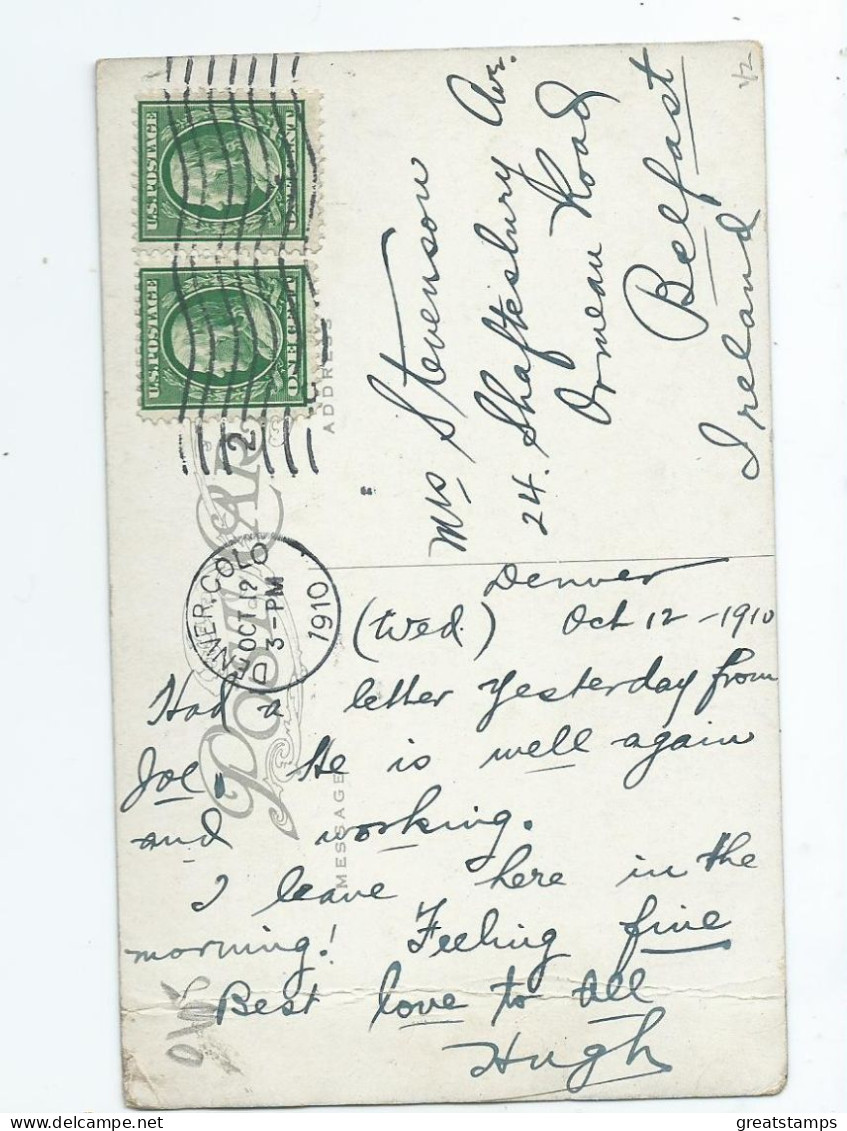 U.S. POSTAGE
ONE CENT
U.S. POSTAGE
ONE CENT
2
DENVER, COLO
OCT 12
3-PM
1910
POST CARD
ADDRESS
Mrs Stevenson
24. Shaftesbury Ave.
Ormeau Road
Belfast
Ireland
1/2
MESSAGE
Denver
(Wed.) Oct 12-1910
Had a letter yesterday from
Joe. He is well again
and working.
I leave here in the
morning! Feeling fine
Best love to all
Hugh
greatstamps